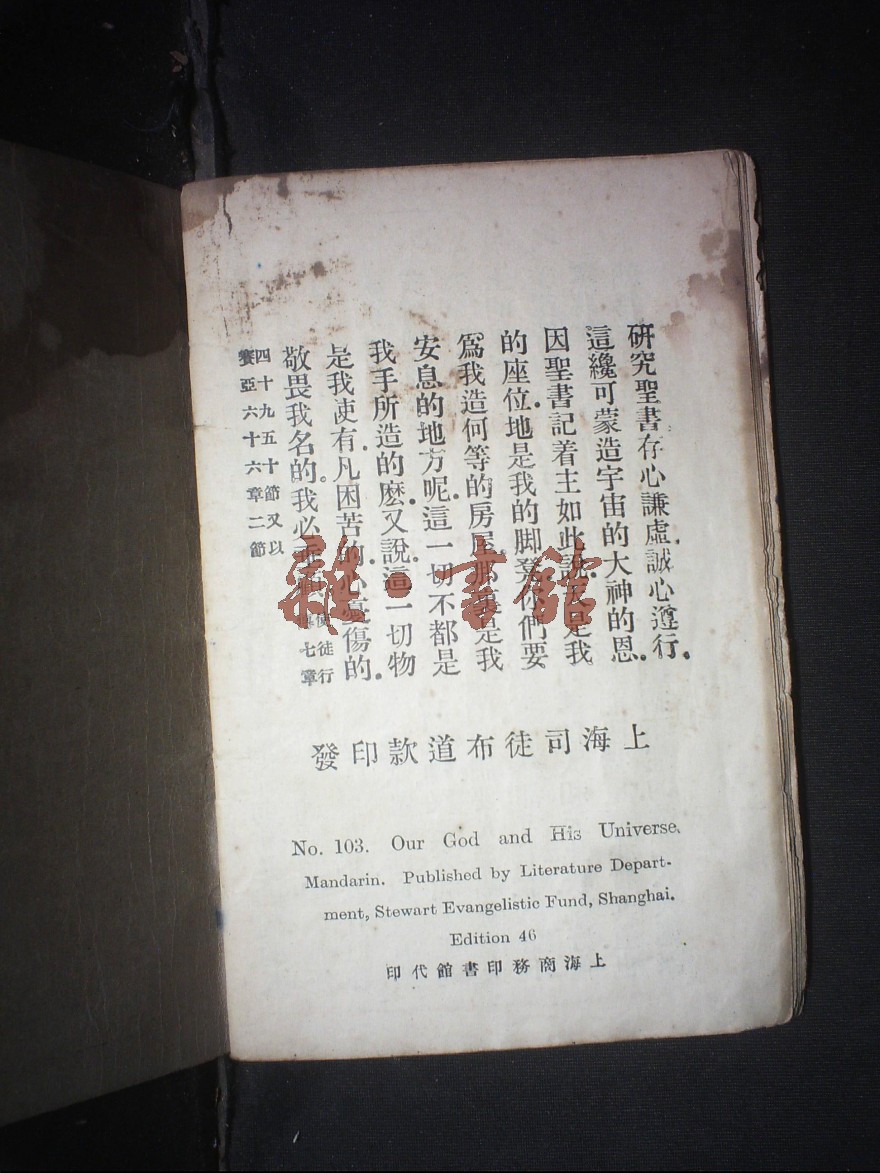 研究聖書存心謙虛.誠心遵行.
這纔可蒙造宇宙的大神的恩.
因聖書記着主如此說.天是我
的座位.地是我的脚凳.你們要
爲我造何等的房屋.那裏是我
安息的地方呢.這一切不都是
我手所造的麽.又說.這一切物
是我使有.凡困苦的.心憂傷的.
敬畏我名的.我必 使徒行傳七章
四十九五十節又以賽亞六十六章二節
上海司徒布道款印發
No. 103. Our God and His Universe.
Mandarin. Published by Literature Depart-
ment, Stewart Evangelistic Fund, Shanghai.
Edition 46
上海商務印書館代印
雜·書館